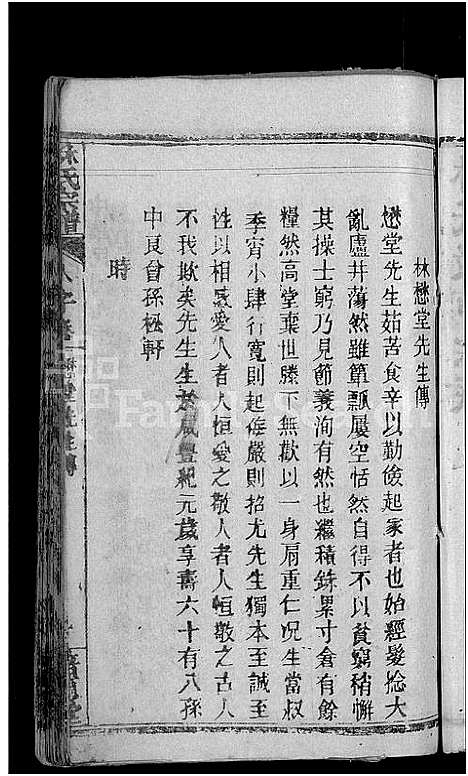 林懋堂先生傳
懋堂先生茹苦食辛以勤儉起家者也始經髮捻大
亂廬井蕩然雖簞瓢屢空恬然自得不以貧窮稍懈
其操士窮乃見節義洵有然也繼積銖累寸倉有餘
糧然高堂棄世膝下無歡以一身肩重仁况生當叔
季宵小肆行寬則起侮嚴則招尤先生獨本至誠至
性以相感愛人者人恒愛之敬人者人恒敬之古人
不我欺矣先生生於咸豐紀元歲享壽六十有八孫
中良曾孫松軒
時
林氏宗譜
先生傳